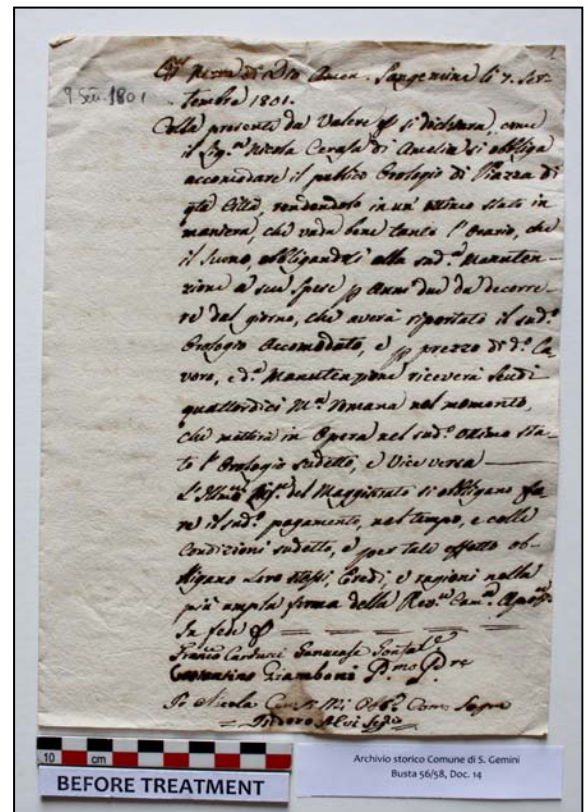 1
9 Set. 1801
Nome di Dio Amen. Sangemine li 7. Set-
tembre 1801.
Colla presente da Valere si dichiara, come
il Sig.re Nicola Cerasa di Amelia si obbliga
accomodare il publico Orologio di Piazza di
qta Città, rendendolo in un' ottimo stato in
maniera, che vada bene tanto l'Orario, che
il Suono, obbligandosi alla sud.a Manuten-
zione à sue Spese p Anni due da decorre-
re dal giorno, che averà riportato il sud.o
Orologio Accomodato, e p prezzo di d.o La-
voro, e d.a Manutenzione riceverà Scudi
quattordici M.ta romana nel momento,
che metterà in Opera nel sud.o ottimo sta-
to l'Orologio sudetto, e Vice versa
L'Illmi Sig.ri del Maggistrato si obbligano fa-
re il sud.o pagamento, nel tempo, e colle
Condizioni sudette, e per tale effetto ob-
bligano Loro stessi, Eredi, e ragioni nella
più ampla forma della Rev. Cam. Apos.
In fede
Franco Carducci
Giamboni P.mo P.re
Io Nicola Mi Obb.o Come Sopra
Isidoro Alesi Seg.rio
10 cm
BEFORE TREATMENT
Archivio storico Comune di S. Gemini
Busta 56/58, Doc. 14